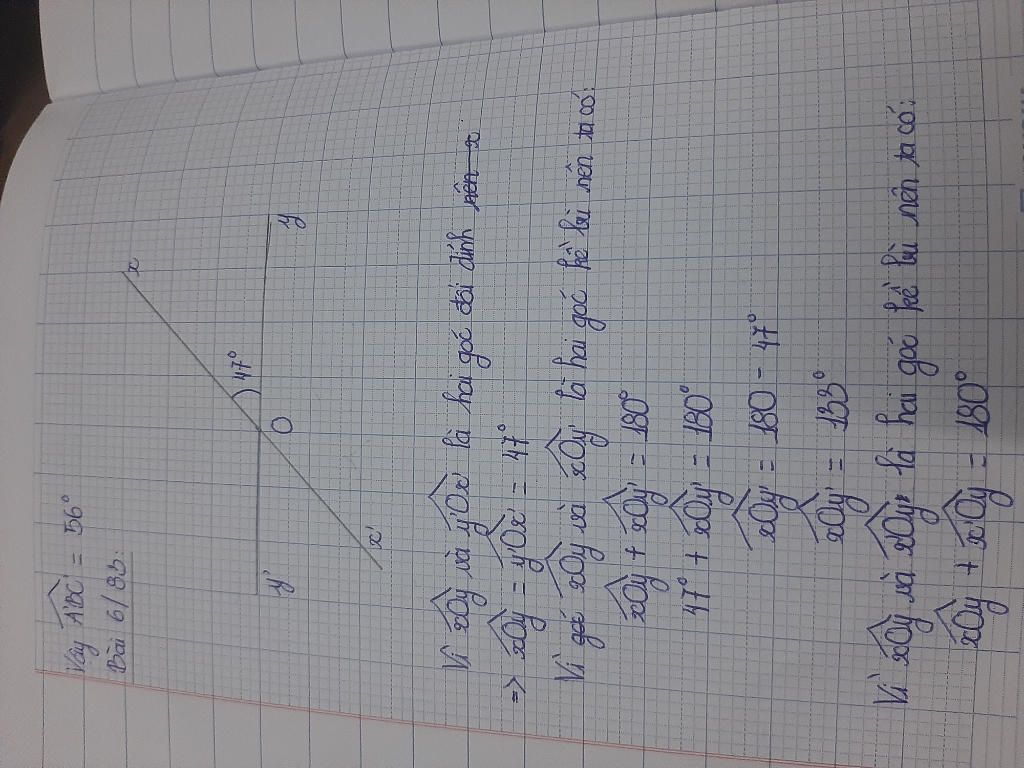 Vậy A'BC' = 56°
Bài 6/83:
x
47°
O
y
y'
x'
Vì xOy và y'Ox' là hai góc đối đỉnh nên x
=> xOy = y'Ox' = 47°
Vì góc xOy và xOy' là hai góc kề bù nên ta có:
xOy + xOy' = 180°
47° + xOy' = 180°
xOy' = 180 - 47°
xOy' = 133°
Vì xOy và xOy' là hai góc kề bù nên ta có:
xOy + x'Oy = 180°